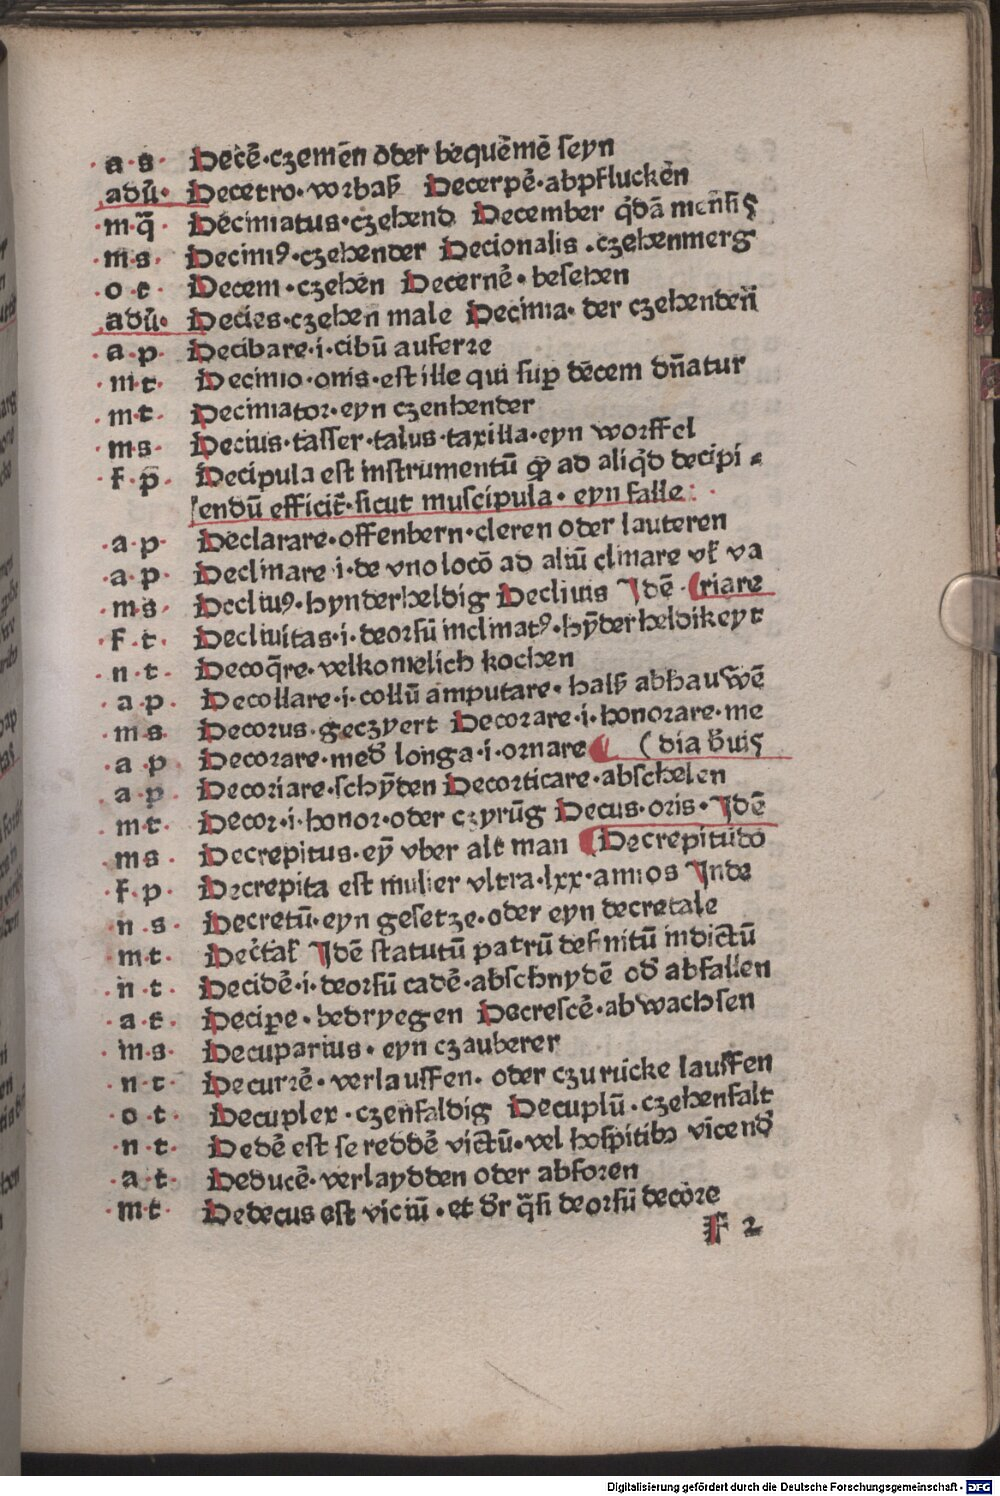 ·a·s· Decē·czemēn oder bequēmē seyn
adū· Decetro·vorbaß Decerpē·abpflucken
·m·q̄· Decimatus·czehend December q̄dā mēnsis
·m·s· Decimꝰ·czehender Decionalis·czehenmerg
·o·t· Decem·czehen Decernē·besehen
adū· Decies·czehen male Decima·der czehenden
·a·p· Decibare·i·cibū auferre
·m·t· Decimo·onis·est ille qui sup̄ decem dn̄atur
·m·t· Decimator·eyn czenhender
·m·s· Decius·tasser·talus·taxilla·eyn worffel
·f·p· Decipula est instrumentū ꝙ ad aliq̄d decipi⸗
endū efficit̄·sicut muscipula·eyn falle
·a·p· Declarare·offenbern·cleren oder lauteren
·a·p· Declinare·i·de vno locō ad aliū clinare vl̄ va
·m·s· Decliuꝰ·hynderheldig Decliuis Idē (riare
·f·t· Decliuitas·i·deorsū inclinatꝰ·hȳderheldikeyt
·n·t· Decoq̄re·velkomelich kochen
·a·p· Decollare·i·collū amputare·halß abhauwē
·m·s· Decorus·geczyert Decorare·i·honorare·me
·a·p· Decorare·med̄ longa·i·ornare (dia b̄uis
·a·p· Decoriare·schȳden Decorticare·abschelen
·m·t· Decor·i·honor·oder czyrūg Decus·oris·Idē
·m·s· Decrepitus·eȳ vber alt man Decrepitudo
·f·p· Decrepita est mulier vltra·lxx·annos Inde
·n·s· Decretū·eyn gesetze·oder eyn decretale
·m·t· Dec̄tal̄ Idē statutū patrū definitū indictū
·n·t· Decidē·i·deorsū cadē·abschnydē od̄ abfallen
·a·t· Decipe·bedryegen Decrescē·abwachsen
·m·s· Decuparius·eyn czauberer
·n·t· Decurrē·verlauffen·oder czurücke lauffen
·o·t· Decuplex·czenfaldig Decuplū·czehenfalt
·n·t· Dedē est se reddē victū·vel hospitibꝰ vicend̄
·a·t· Deducē·verlaydden oder abforen
·m·t· Dedecus est viciū·et dr̄ q̄si deorsū decore
f 2
Digitalisierung gefördert durch die Deutsche Forschungsgemeinschaft - DFG